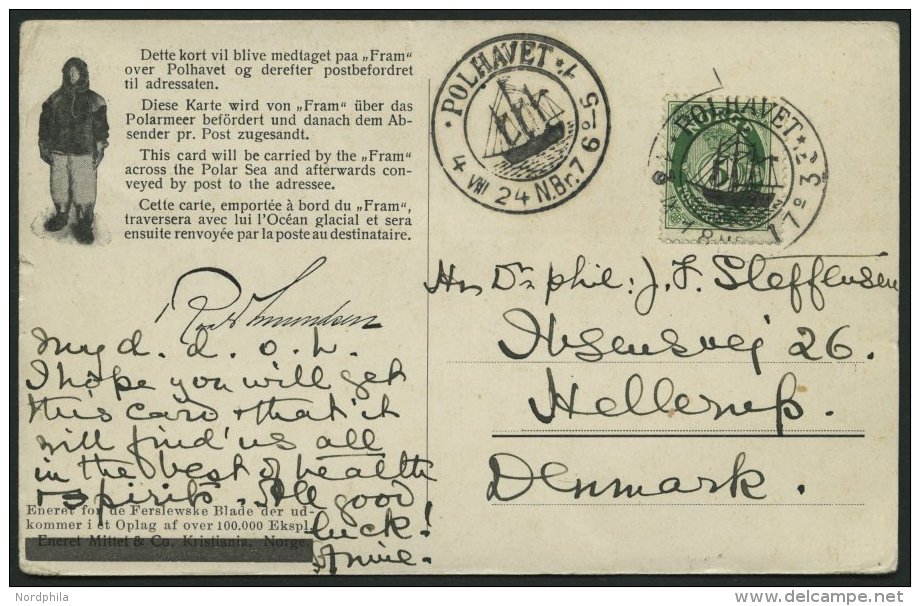 Dette kort vil blive medtaget paa „Fram“
over Polhavet og derefter postbefordret
til adressaten.
Diese Karte wird von „Fram“ über das
Polarmeer befördert und danach dem Ab-
sender pr. Post zugesandt.
This card will be carried by the „Fram“
across the Polar Sea and afterwards con-
veyed by post to the adressee.
Cette carte, emportée à bord du „Fram“,
traversera avec lui l'Océan glacial et sera
ensuite renvoyée par la poste au destinataire.
Roald Amundsen
My d. d. o. h.
I hope you will get
this card & that it
will find us all
in the best of health
& spirits. All good
luck!
Annie.
Eneret for de Ferslewske Blade der ud-
kommer i et Oplag af over 100.000 Ekspl.
Eneret Mittet & Co. Kristiania, Norge.
POLHAVET
4 VIII 24 N.Br. 7 6º-5
POLHAVET
NORGE
Hr Dr phil: J. F. Steffensen
Ibsensvej 26.
Hellerup.
Denmark.
Nordphila
delcampe.net